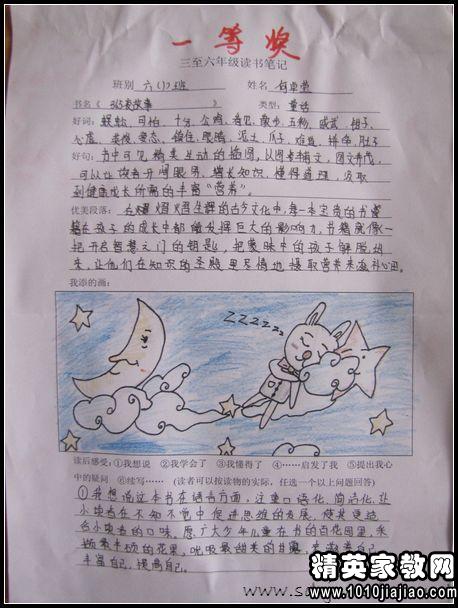 一等奖
三至六年级读书笔记
班别 六(1)班 姓名
书名《365夜故事》 类型:童话
好词:蜈蚣、可怕、十分、公鸡、看见、散步、五彩、威武、
泥土、爪子、难道、
好句:书中可见精美生动的插图,以图卡辅文,图文并茂,
可以让读者开阔眼界,增长知识,懂得道理,汲取
到健康成长所需的丰富“营养”。
优美段落:在 熠熠生辉的古今文化中,每一本宝贵的书
在孩子的成长中都能发挥巨大的影响力。书籍就像一
把开启智慧之门的钥匙,把蒙昧中的孩子解脱出
来,让他们在知识的圣殿里尽情地摄取营养来滋补心田。
我添的画:
ZZZZZZz
读后感受:①我想说 ②我学会了 ③我懂得了 ④……启发了我 ⑤提出我心
中的疑问 ⑥续写……(读者可以按读物的实际,任选一个以上问题回答)
①我想说这本书在语言方面,注重口语化、简洁化,让
小读者在不知不觉中促进思维的发展,使其更适
合小读者的口味。愿广大少年儿童在书的百花园里,采
撷最丰硕的花果,吮吸最甜美的甘露,去 自己,
丰富自己,提高自己。
精英家教网
www.1010jiajiao.com